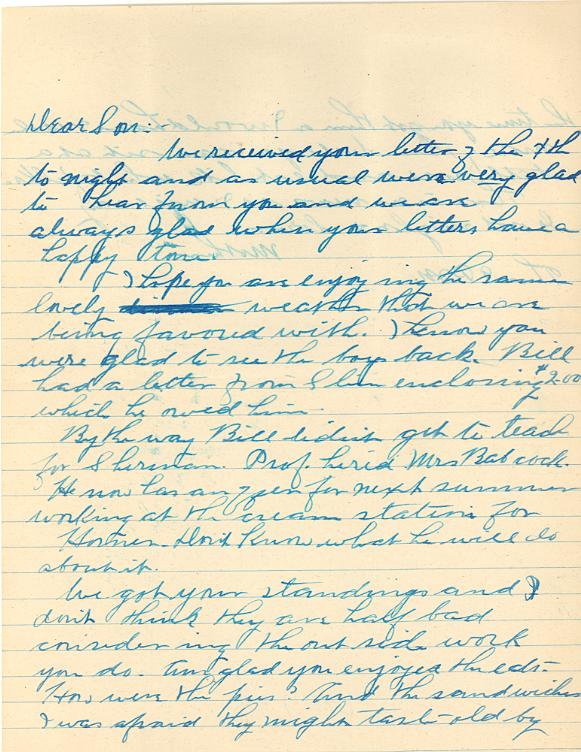 Dear Son:
We received your letter of the 7th
to night and as usual were very glad
to hear from you and we are
always glad when your letters have a
happy tone.
I hope you are enjoying the same
lovely weather that we are
being favored with. I know you
were glad to see the boys back. Bill
had a letter from Slim enclosing $2.00
which he owed him.
By the way Bill didn't get to teach
for Sherman. Prof. hired Mrs Babcock.
He now has an offer for next summer
working at the cream station for
Horner. Don't know what he will do
about it.
We got your standings and I
don't think they are half bad
considering the out side work
you do. Am glad you enjoyed the eats.
How were the pies? And the sandwiches
I was afraid they might taste old by